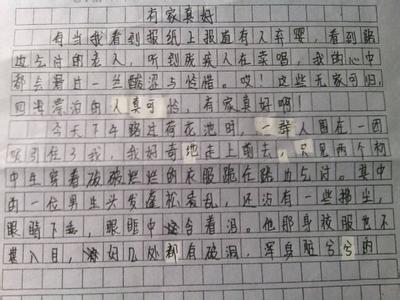 有家真好
有当我看到报纸上报道有人弃婴，看到路
边乞讨的老人，听到残疾人在卖唱，我的心中
都会看过一丝酸涩与怜惜。哎！这些无家可归，
四海漂泊的人真可怜，有家真好啊！
今天下午路过荷花池时，一群人围在一团
吸引住了我，我好奇地走上前去，只见两个初
中生穿着破破烂烂的衣服跪在路边乞讨。其中
的一位男生头发蓬松若乱，还沾有一些扬尘，
眼睛下垂，眼眶中含着泪。他那身衣服也不
堪入目，好几处都有破洞，浑身脏兮兮的